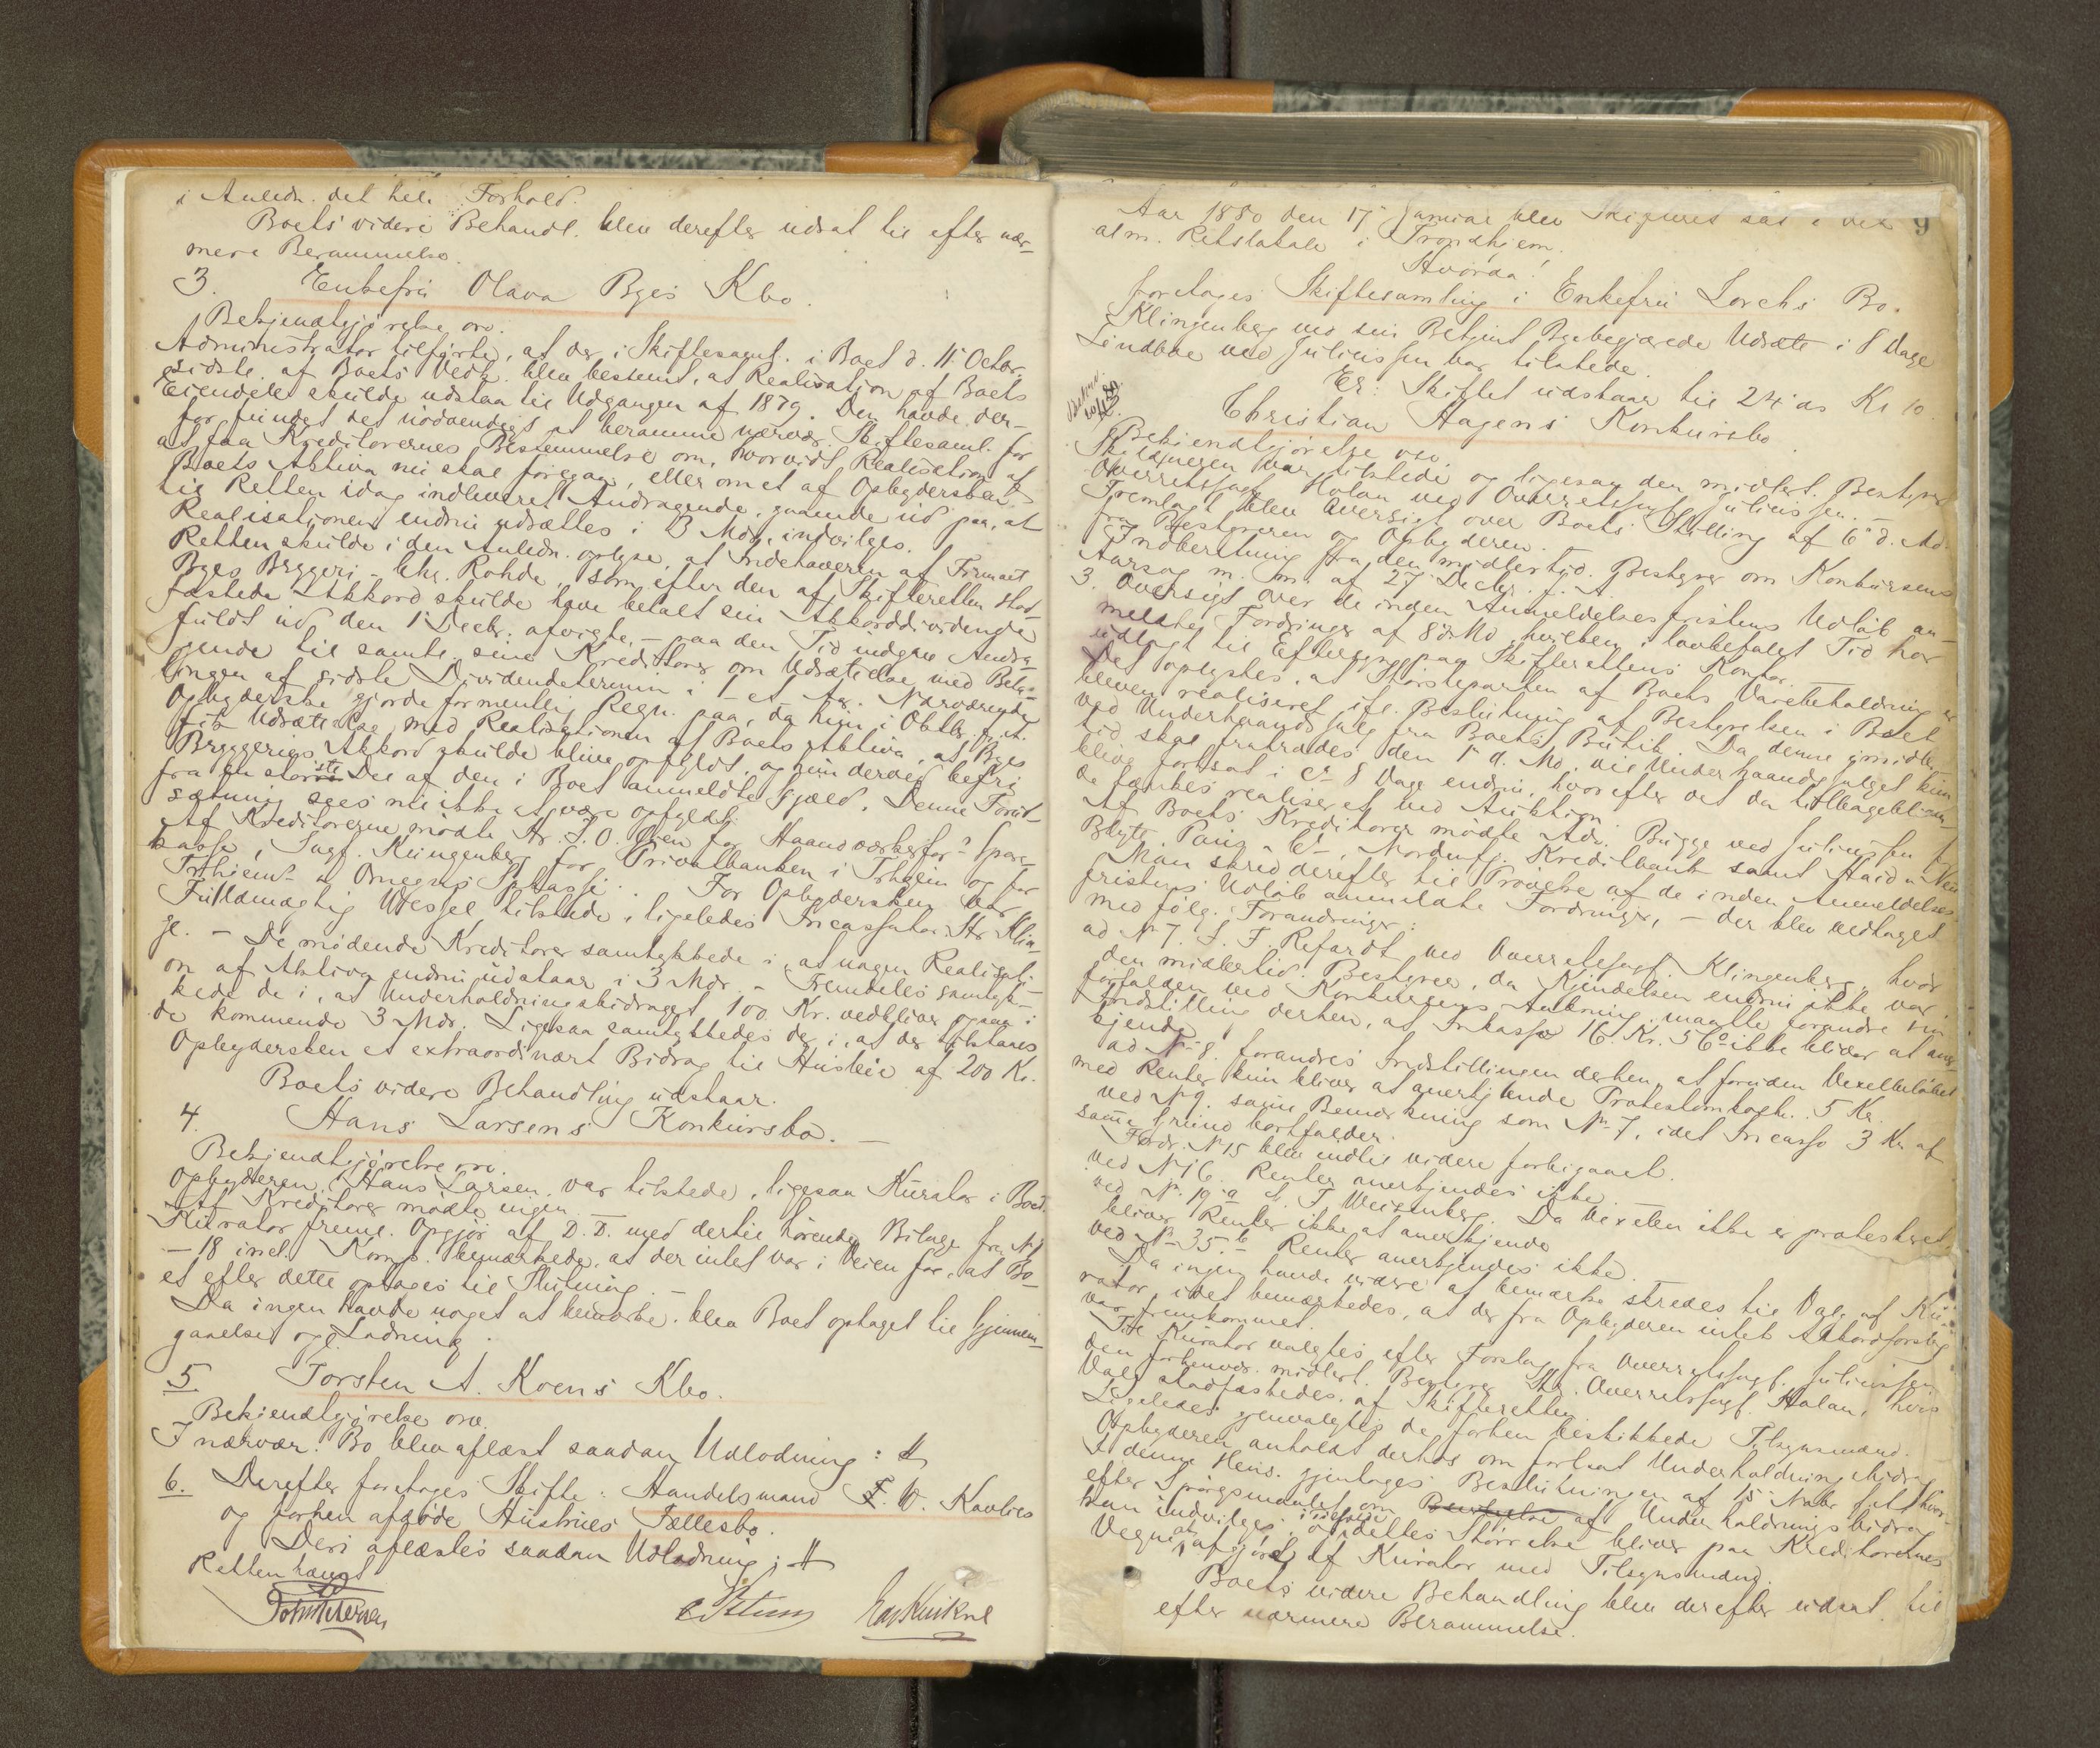 i Anledn. det hele Forhold.
Boets videre Behandl. blev derefter udsat til efter nær-
mere Berammelse.
3. Enkefru Olava Byes Kbo.
Bekjendtgjørelse ovs.
Administrator tilførte, at der i Skiftesaml. i Boet d. 11 Octbr.
sidste af Boets Vedk. blev bestemt, at Realisation af Boets
Eiendele skulde udstaa til Udgangen af 1879. Den havde der-
for fundet det nödvendigt at beramme nærvær. Skiftesaml. for
at faa Kreditorernes Bestemmelse om, hvorvidt Realisation af
Boets Aktiva nu skal foregaa, eller om et af Opbydersken
til Retten idag indleveret Andragende, gaaende ud paa, at
Realisationen endnu udsættes i 3 Mdr, indvilges.
Retten skulde i den Anledn. oplyse, at Indehaveren af Firmaet
Byes Bryggeri - Chr. Rohde, som efter den af Skifteretten stad-
fæstede Akkord skulde have betalt sin Akkorddividende
fuldt ud den 1 Decbr. afvigte, - paa den Tid indgav Andra-
gende til samtl. sine Kreditorer om Udsættelse med Beta-
lingen af sidste Dividendetermin i et Aar. Nærværende
Opbyderske gjorde formentlig Regn. paa, da hun i Oktbr. f. A.
fik Udsættelse med Realisationen af Boets Aktiva, at Byes
Bryggeris Akkord skulde blive opfyldt, og hun derved befri
fra en største Del af den i Boet anmeldte Gjæld. Denne Forud-
sætning sees nu ikke at være opfyldt.
Af Kreditorerne mödte Hr. I. O.Øien for Haandværkerfor. Spare-
kasse, Sagf. Klingenberg for Privatbanken i Trhjem og for
Trhjems & Omegns Spkasse. For Opbydersken var
Fuldmægtig Wessel tilstede, ligeledes Incassator Hr. Klin-
ge. - De mødende Kreditorer samtykkede i, at nogen Realisati-
on af Aktiva endnu udstaar i 3 Mdr. - Fremdeles samtyk-
kede de i, at Underholdningsbidraget 100 Kr. vedbliver ogsaa i
de kommende 3 Mdr. Ligesaa samtykkedes der i, at der tilstaaes
Opbydersken et extraordinært Bidrag til Husleie af 200 Kr.
Boets videre Behandling udstaar.
4. Hans Larsens Konkursbo. -
Bekjendtgjørelse ovs.
Opbyderen, Hans Larsen, var tilstede, ligesaa Kurator i Boet.
Af Kreditorer mødte ingen.
Kurator freml. Opgjør af D. D. med dertil hørende Bilage fra No 1
- 18 incl. Komp. bemærkede, at der intet var i Veien for, at Bo-
et efter dette optages til Slutning. -
Da ingen havde noget at bemærke, blev Boet optaget til Gjennem-
gaaelse og Ladning.
5. Torsten A. Koens Kbo.
Bekjendtgjørelse ovs.
I nærvær. Bo blev aflæst saadan Udlodning: #
6. Derefter foretages Skifte: Handelsmand F. W. Kavlies
og forhen afdøde Hustrues Fællesbo.
Deri aflæstes saadan Udlodning: #
Retten hævet
Aar 1880 den 17 Januar blev Skifteret sat i det 9
alm. Retslokale i Trondhjem.
Hvorda:
foretages Skiftesamling i Enkefru Lorchs Bo.
Klingenberg ved sin Betjent Bye begjærede Udsætt. i 8 Dage
Lindboe ved Juliussen var tilstede.
Er: Skiftet udstaar til 24 ds Kl 10.
Christian Hagens Konkursbo.
Bekjendtgjörelse ovs.
Skyldneren var tilstede og ligesaa den midlert. Bestyrer
Overretssagf. Holan ved Overretssagf. Juliussen. -
Fremlagt blev Oversigt over Boets Stilling af 6 d. Md.
fra Bestyreren og Opbyderen.
Indberetning fra den midlertid. Bestyrer om Konkursens
Aarsag m. m. af 27 Decbr. f. A.
3. Oversigt over de inden Anmeldelsesfristens Udlöb an-
meldte Fordringer af 8 ds Md, hvilken i lovbefalet Tid har
udlagt til Eftersyn paa Skifterettens Kontor.
Det oplystes, at Størsteparten af Boets Varebeholdning er
bleven realiseret ifl. Beslutning af Bestyrelsen i Boet
ved Underhaandssalg fra Boets Butik. Da denne imidler-
tid skal fratrædes den 1 d. Md. vil Underhaandssalget kun
blive fortsat i ca 8 Dage endnu, hvorefter det da tilbageblivn-
de tænkes realiseret ved Auktion.
Af Boets Kreditorer mødte Adv. Bugge ved Juliussen for
Blyth, Paus & Co, Nordenfj. Kreditbank samt Haid & Neu
Man skred derefter til Prøvelse af de inden Anmeldelses-
fristens Udlöb anmeldte Fordringer, - der blev vedtaget
med fölg. Forandringer:
ad No 7. J. F. Refardt ved Overretssagf. Klingenberg, hvor
den midlertid. Bestyrer, da Kjendelsen endnu ikke var
forfalden ved Konkursens Aabning, maatte forandre sin
Indstilling derhen, at Inkasso 16 Kr. 56 Ø ikke bliver at aner-
kjende.
ad No 8. forandres Indstillingen derhen, at foruden Vexelbeløbet
med Renter kun bliver at anerkjende Protestomkostn. 5 Kr.
ved No 9. samme Bemærkning som No 7, idet Incasso 3 Kr. af
samme Grund bortfalder.
Fordr. No 15 blev indtil videre forbigaaet.
ved No 16. Renter anerkjendes ikke.
ved No 19 a J. F. Weizenberg. Da Vexelen ikke er protesteret
bliver Renter ikke at anerkjende
ved No 35 b Renter anerkjendes ikke.
Da ingen havde videre at bemærke skredes til Valg af Ku-
rator, idet bemærkedes, at der fra Opbyderen intet Akkordforslag
var fremkommet.
Til Kurator valgtes efter Forslag fra Overretssagf. Juliussen
den forhenvær. midlert. Bestyrer Hr. Overretssagf. Holan, hvis
Valg stadfæstedes af Skifteretten.
Ligeledes gjenvalgtes de forhen beskikkede Tilsynsmænd.
Opbyderen anholdt derhos om fortsat Underholdningsbidrag
I denne Hens. gjentages Beslutningen af 15 Novbr f. A. hvor-
efter Spörgsmaalet om af Underholdningsbidrag
kan indvilges, og dettes Størrelse bliver paa Kreditorernes
Vegne at afgjøre af Kurator med Tilsynsmænd.
Boets videre Behandling blev derefter udsat til
efter nærmere Berammelse.